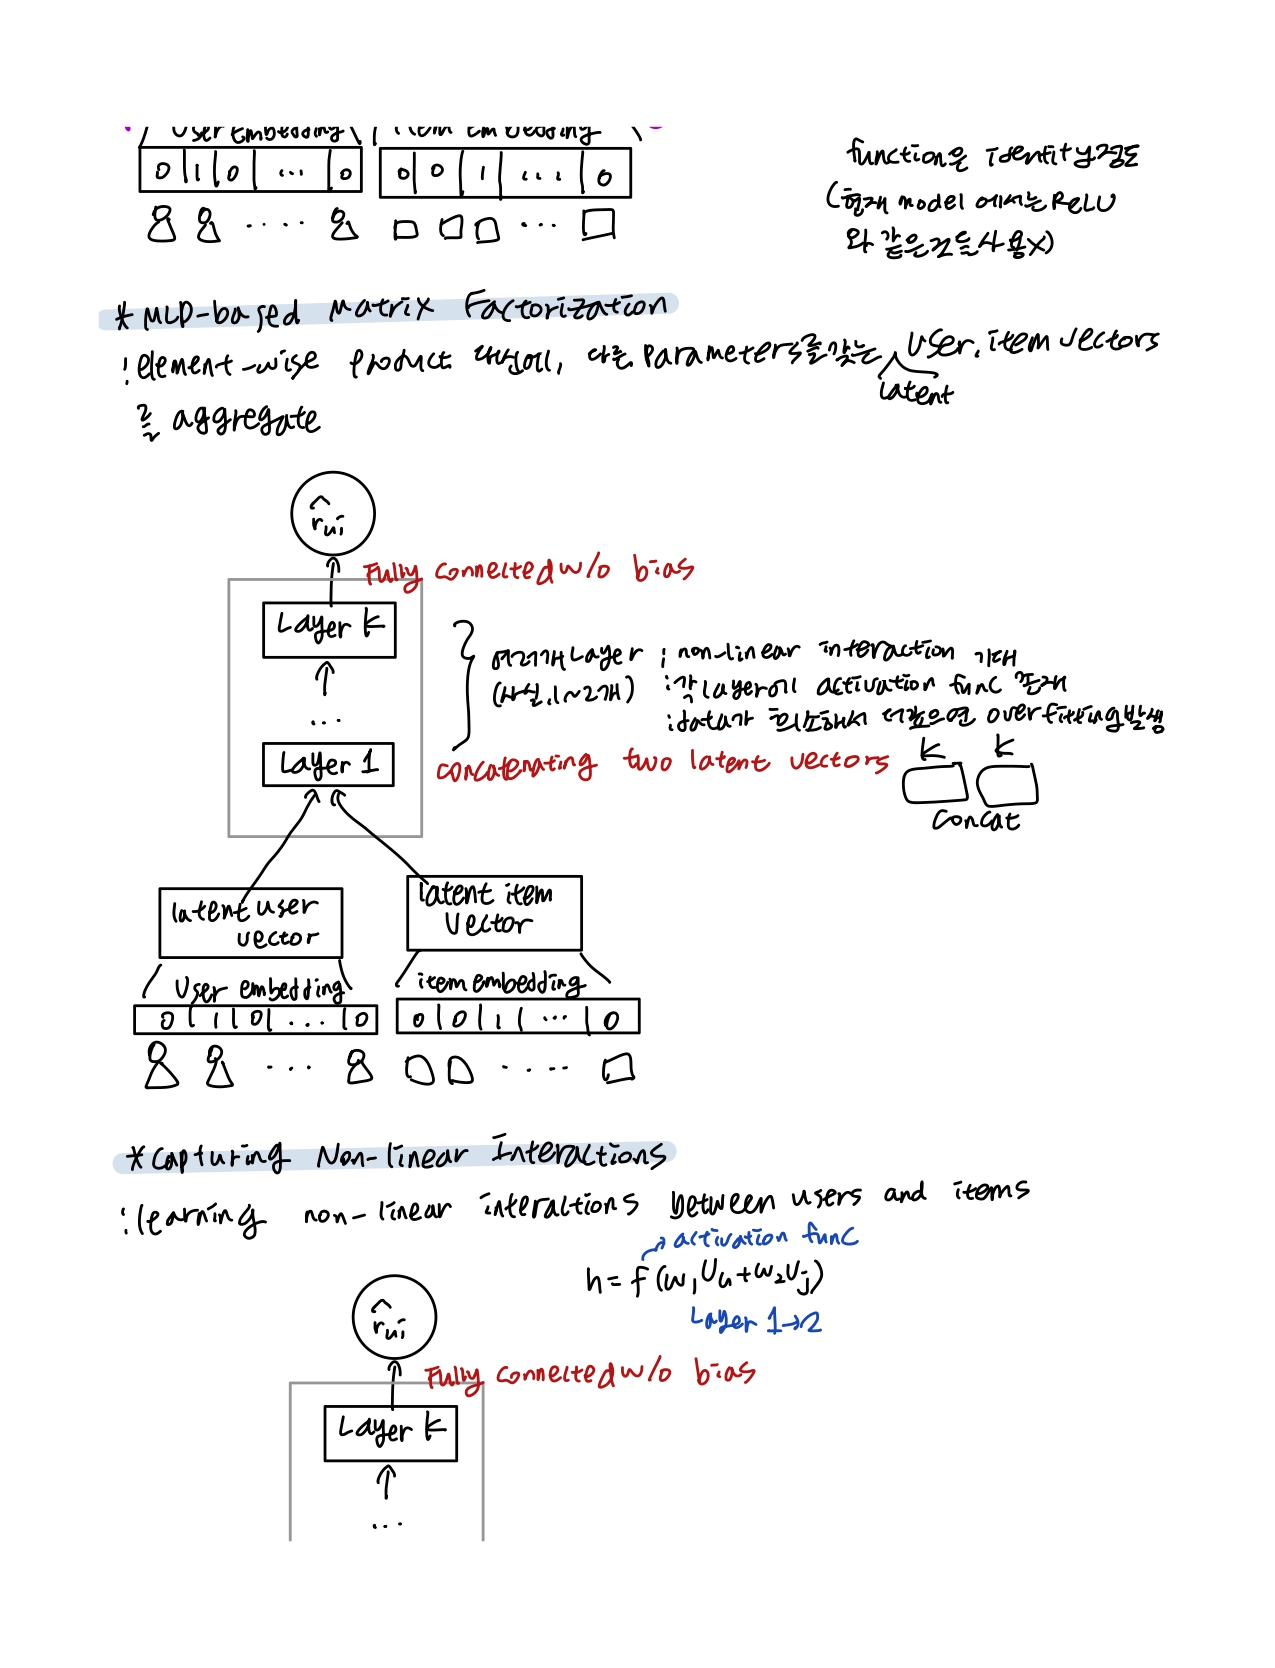 User Embedding
item embedding
0 1 0 ... 0
0 0 1 ... 0
function은 identity정도
(현재 model 에서는 ReLU
와 같은 것을 사용X)
* MLP-based Matrix Factorization
: element-wise product 대신에, 다른 parameters를 갖는 user, item vectors
latent
를 aggregate
r̂ui
Fully connected w/o bias
Layer k
...
Layer 1
여러개 Layer : non-linear interaction 기대
(사실, 1~2개) : 각 layer에 activation func 존재
: data가 희소해서 더 깊으면 overfitting 발생
concatenating two latent vectors
k k
concat
latent user
vector
latent item
vector
User embedding
item embedding
0 1 0 ... 0
0 0 1 ... 0
* Capturing Non-linear Interactions
: learning non-linear interactions between users and items
→ activation func
h = f(w₁Uu + w₂Vj)
Layer 1→2
r̂ui
Fully connected w/o bias
Layer k
...